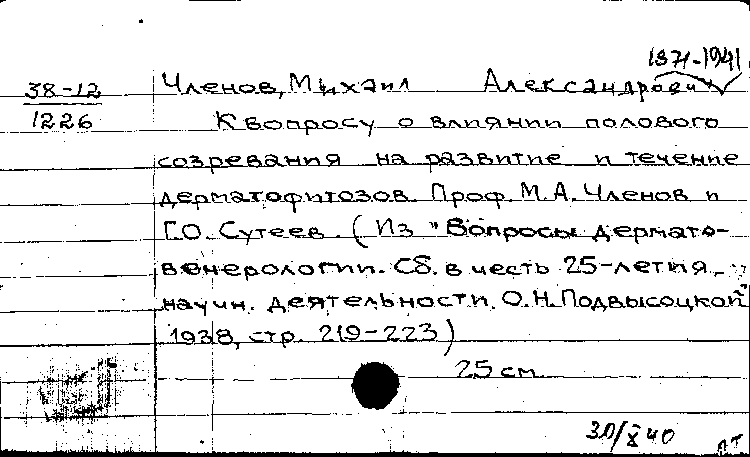 1871-1941
38-12 Членов, Михаил Александрович
1226 К вопросу о влиянии полового
созревания на развитие и течение
дерматофитозов. Проф. М.А. Членов и
Г.О. Сутеев. (Из "Вопросы дермато-
венерологии. Сб. в честь 25-летия
научн. деятельности. О.Н. Подвысоцкой"
1938, стр. 219-223)
25 см
30/X 40